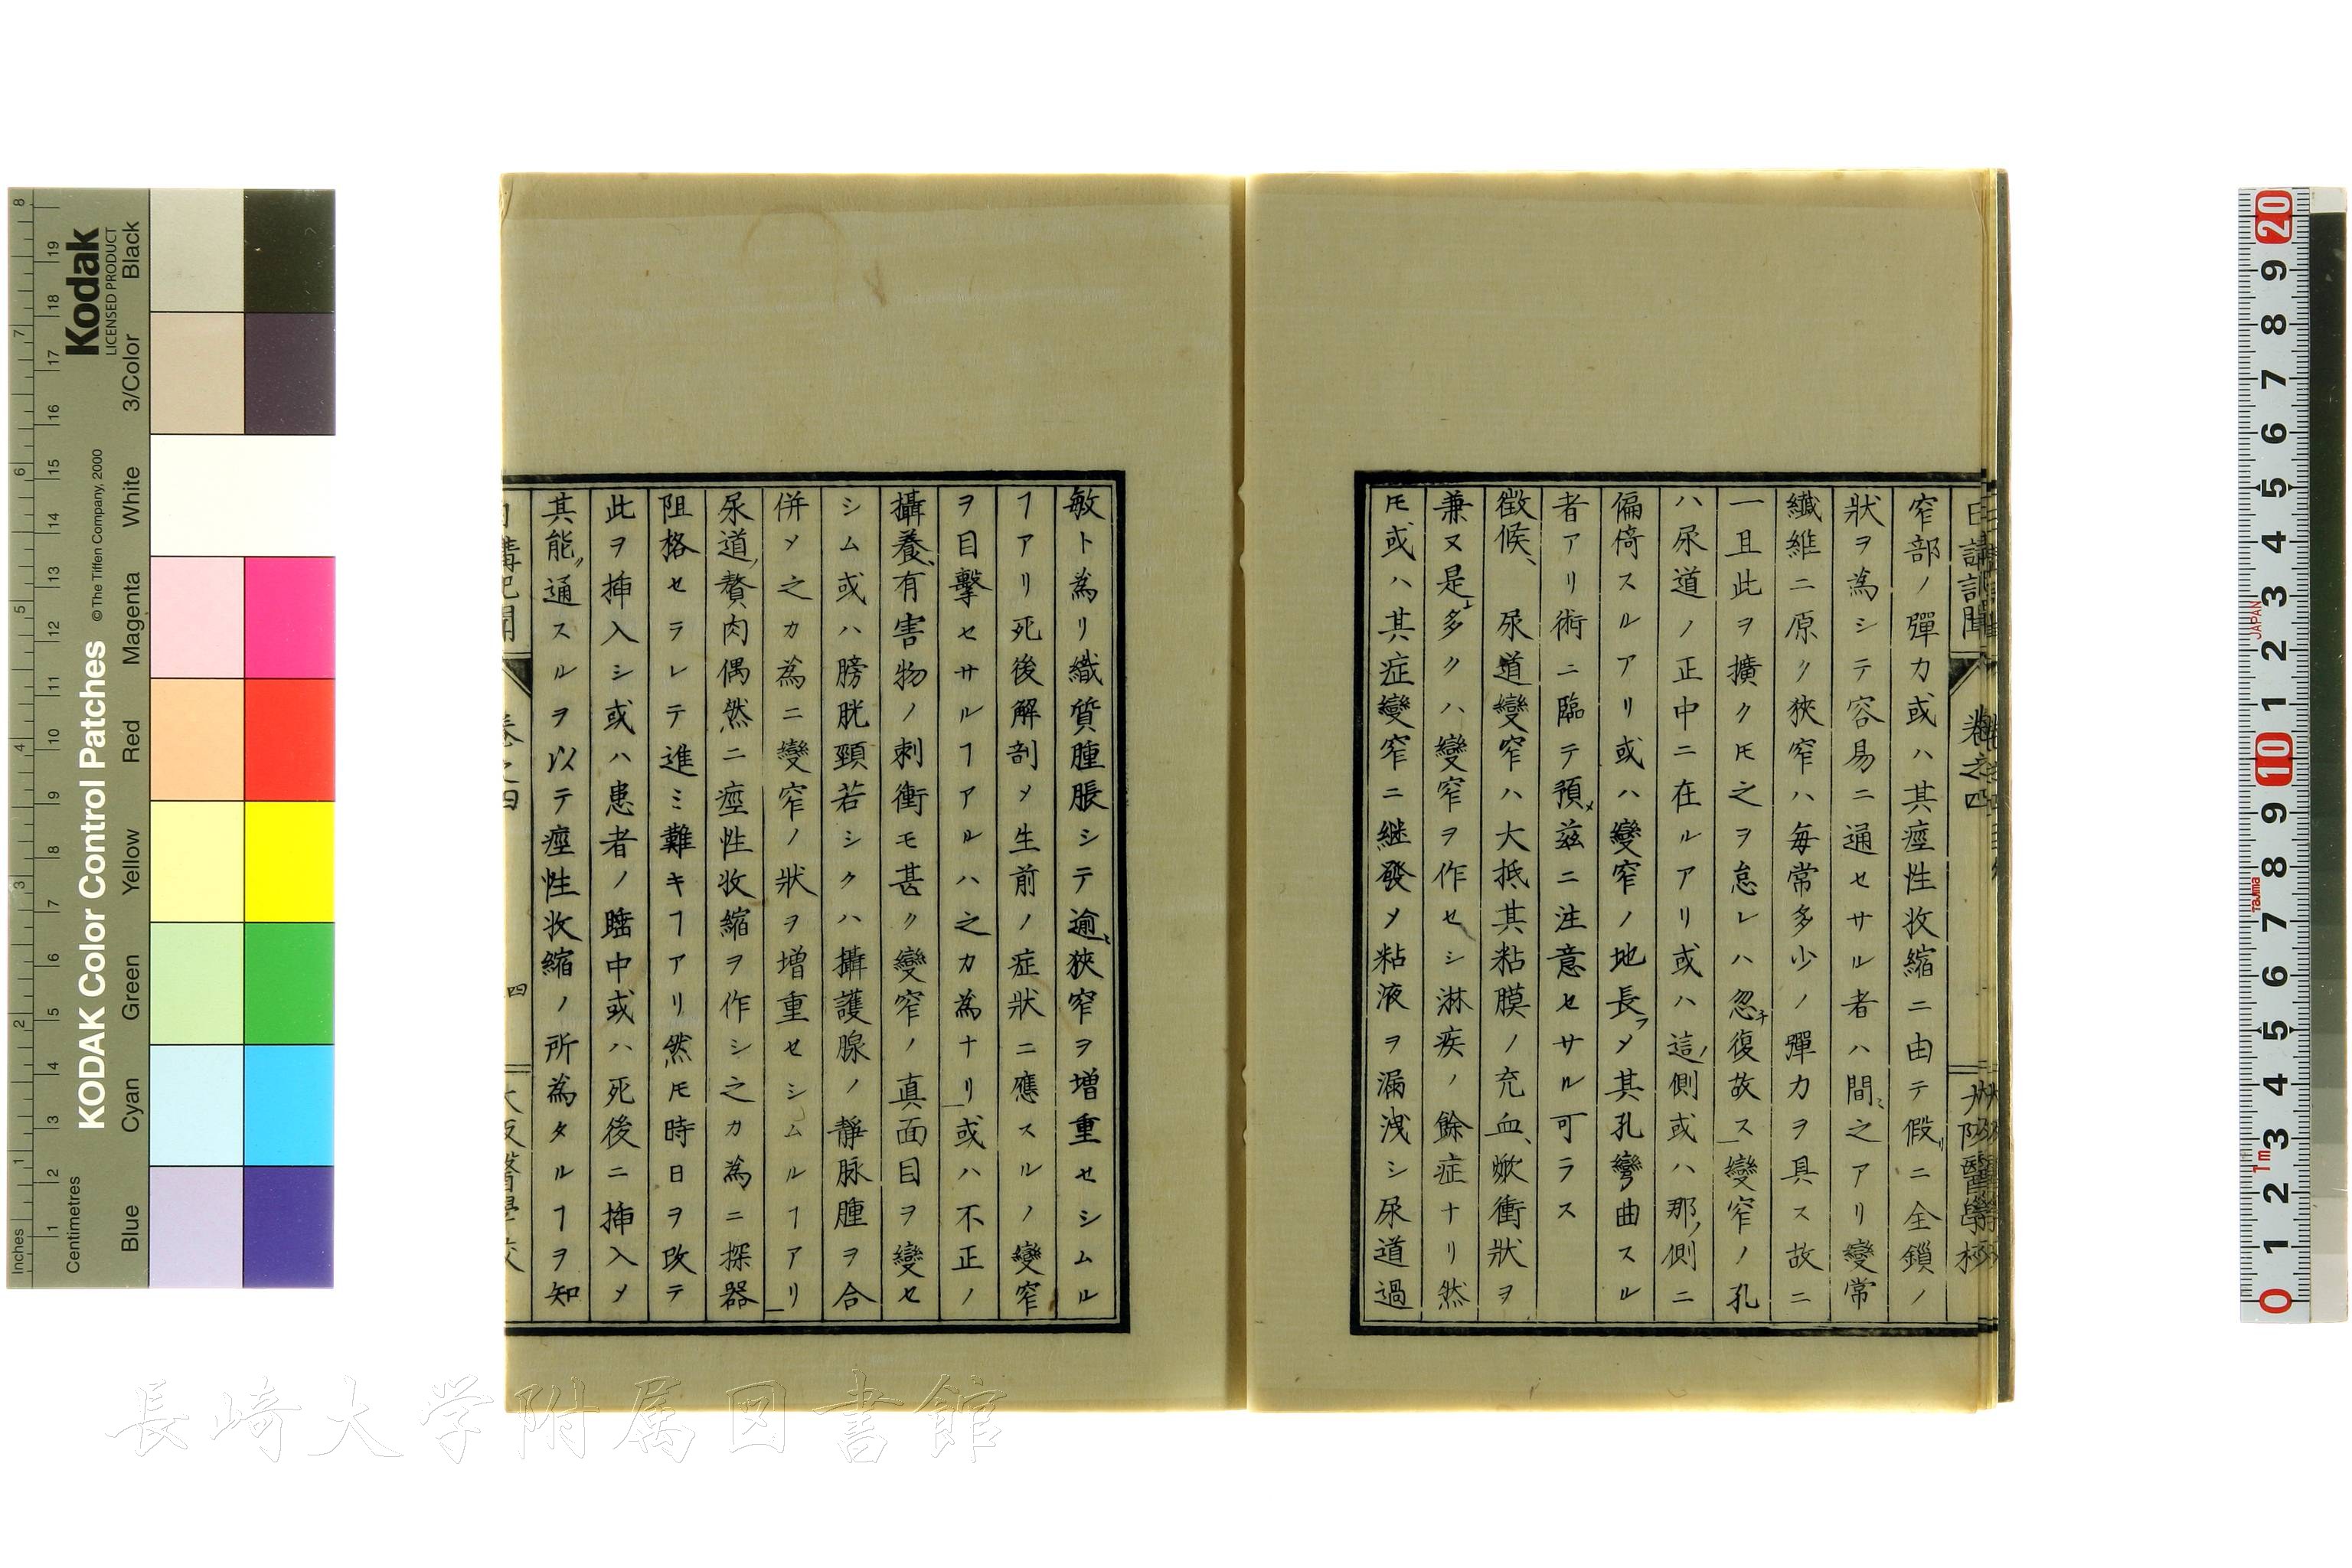 日講記聞 卷之四 大阪醫學校
窄部ノ彈力或ハ其痙性收縮ニ由テ假リニ全鎖ノ
狀ヲ爲シテ容易ニ通セサル者ハ間ミ之アリ變常
纎維ニ原ク狹窄ハ毎常多少ノ彈力ヲ具ス故ニ
一且此ヲ擴クㇳモ之ヲ怠レハ忽チ復故ス變窄ノ孔
ハ尿道ノ正中ニ在ルアリ或ハ這ノ側或ハ那ノ側ニ
偏倚スルアリ或ハ變窄ノ地長フメ其孔彎曲スル
者アリ術ニ臨テ預メ兹ニ注意セサル可ラス
徴候、 尿道變窄ハ大抵其粘膜ノ充血、焮衝狀ヲ
兼又是ヨリ多クハ變窄ヲ作セシ淋疾ノ餘症ナリ然
ㇳモ或ハ其症變窄ニ継發メ粘液ヲ漏洩シ尿道過
敏ト為リ織質腫脹シテ逾ミ狹窄ヲ増重セシムル
ヿアリ死後解剖メ生前ノ症狀ニ應スルノ變窄
ヲ目擊セサルヿアルハ之カ為ナリ或ハ不正ノ
攝養、有害物ノ刺衝モ甚ク變窄ノ真面目ヲ變セ
シム或ハ膀胱頸若シクハ攝護腺ノ靜脉腫ヲ合
併メ之カ為ニ變窄ノ狀ヲ増重セシムルヿアリ
尿道ノ贅肉偶然ニ痙性收縮ヲ作シ之カ為ニ探器
阻格セラレテ進ミ難キヿアリ然ㇳモ時日ヲ改テ
此ヲ挿入シ或ハ患者ノ睡中或ハ死後ニ挿入メ
其能ク通スルヲ以テ痙性收縮ノ所為タルヿヲ知
日講記聞 卷之四 四 大阪醫學校
Kodak
LICENSED PRODUCT
KODAK Color Control Patches
© The Tiffen Company, 2000
Inches
Centimetres
Blue Cyan Green Yellow Red Magenta White 3/Color Black
1 2 3 4 5 6 7 8
1 2 3 4 5 6 7 8 9 10 11 12 13 14 15 16 17 18 19
20 9 8 7 6 5 4 3 2 1 10 9 8 7 6 5 4 3 2 1 0
JAPAN
Tajima
1m
長崎大学附属図書館